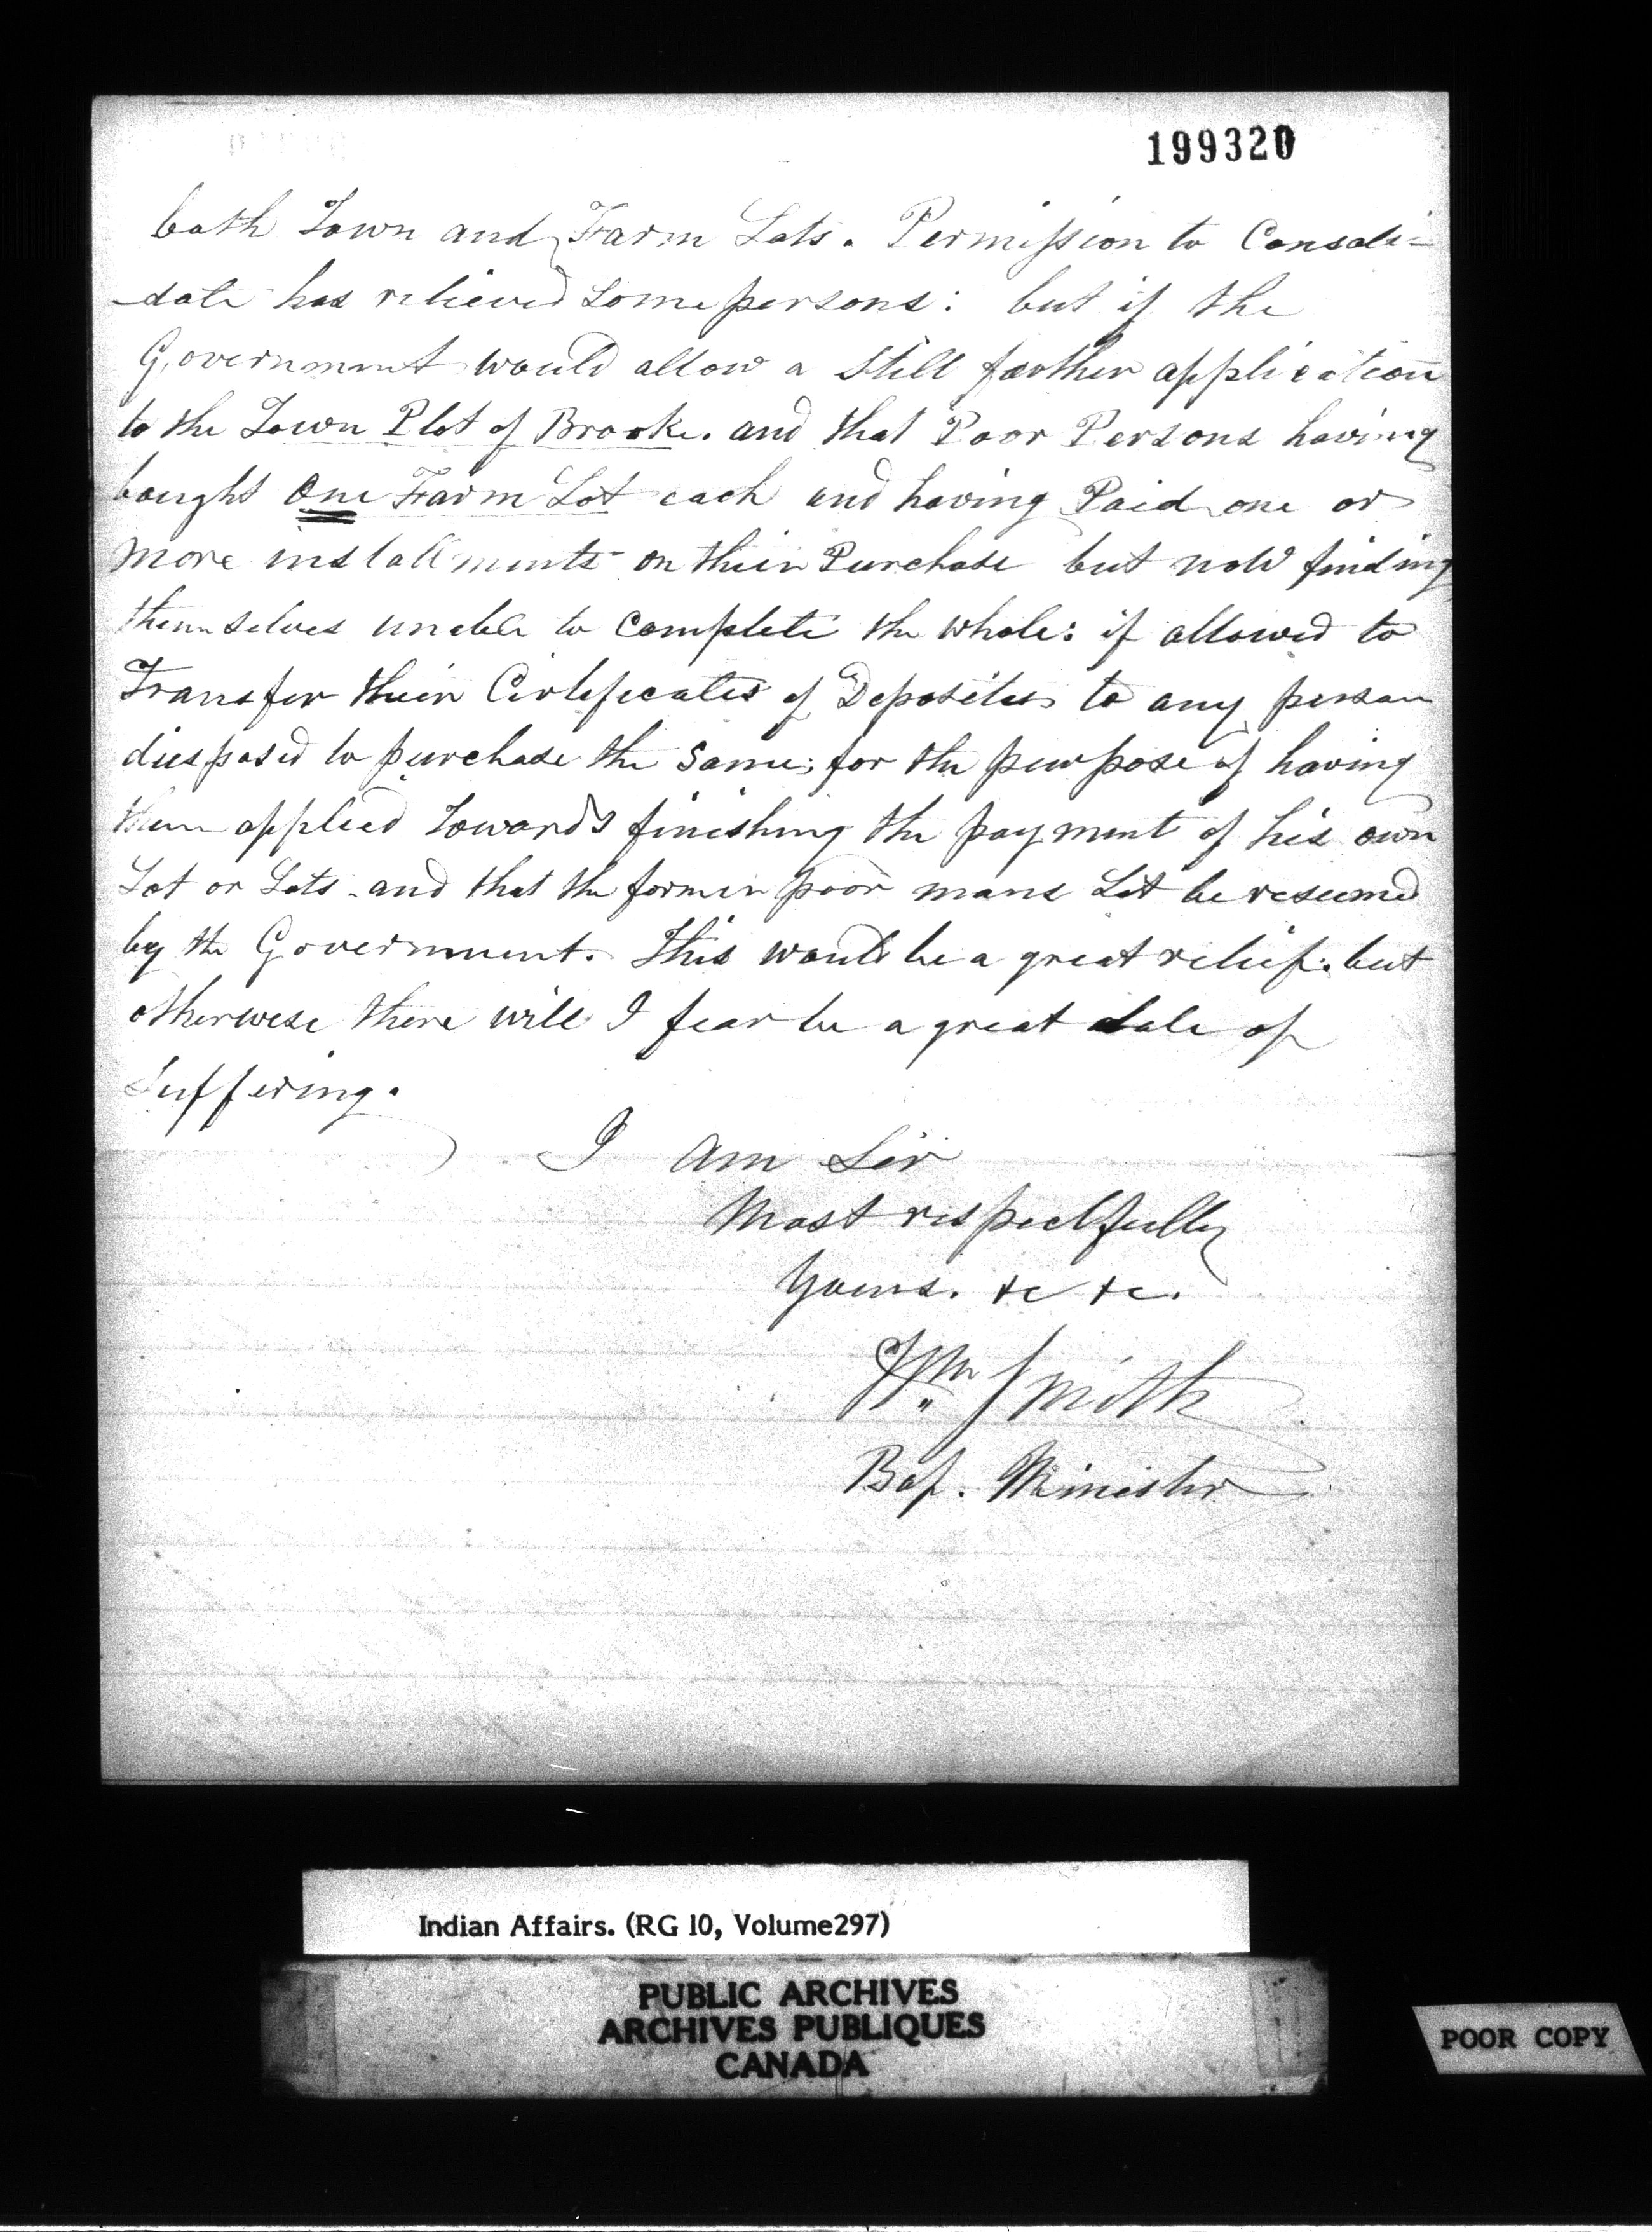 199320
both Town and Farm Lots. Permission to Consoli-
-date has relieved some persons: but if the
Government would allow a still farther application
to the Town Plot of Brooke. and that Poor Persons having
bought One Farm Lot each and having Paid one or
more installments on their Purchase but now finding
themselves unable to complete the whole: if allowed to
Transfer their Certificates of Deposites to any person
disposed to purchase the same; for the purpose of having
them applied towards finishing the payment of his own
Lot or Lots. and that the former poor mans Lot be resumed
by the Government. This would be a great relief: but
otherwise there will I fear be a great dale of
suffering.
I am Sir
Most respectfully
Yours. &c &c.
Wm Smith
Bap. Minister
Indian Affairs. (RG 10, Volume297)
PUBLIC ARCHIVES
ARCHIVES PUBLIQUES
CANADA
POOR COPY